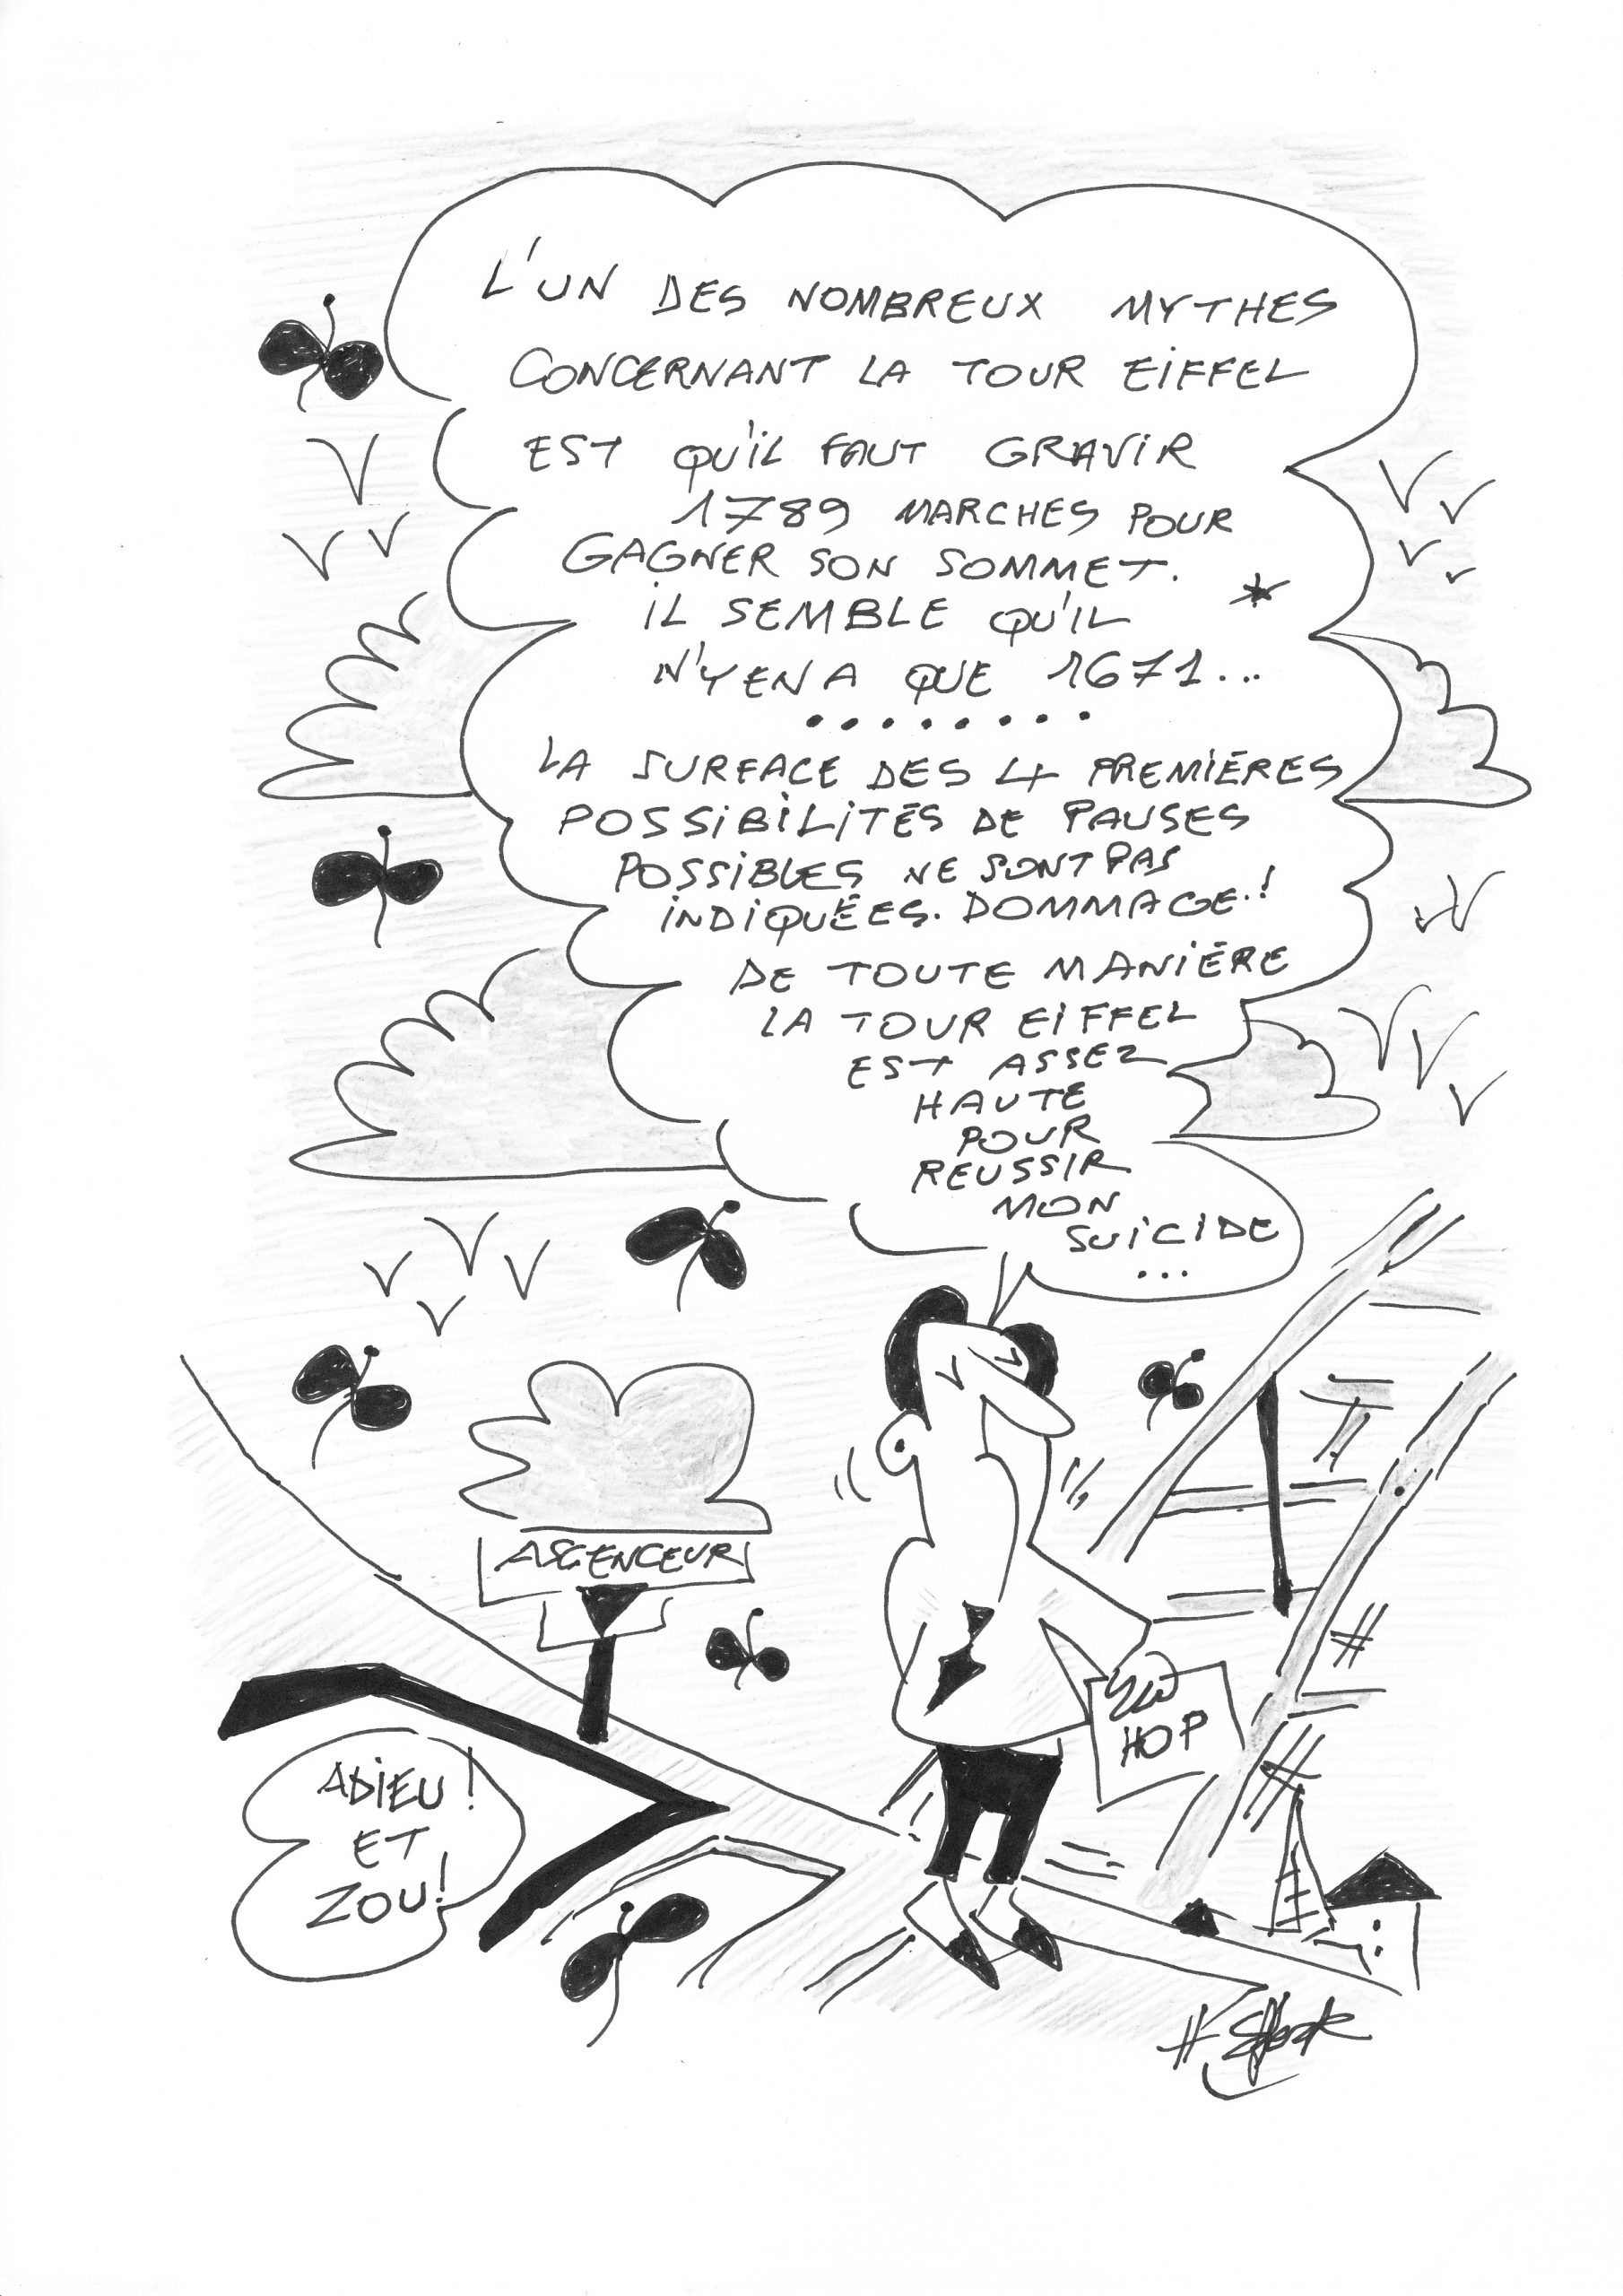 L'UN DES NOMBREUX MYTHES
CONCERNANT LA TOUR EIFFEL
EST QU'IL FAUT GRAVIR
1789 MARCHES POUR
GAGNER SON SOMMET. *
IL SEMBLE QU'IL
N'Y EN A QUE 1671...
........
LA SURFACE DES 4 PREMIÈRES
POSSIBILITÉS DE PAUSES
POSSIBLES NE SONT PAS
INDIQUÉES. DOMMAGE..!
DE TOUTE MANIÈRE
LA TOUR EIFFEL
EST ASSEZ
HAUTE
POUR
REUSSIR
MON
SUICIDE
...
ASCENCEUR
HOP
ADIEU !
ET
ZOU !